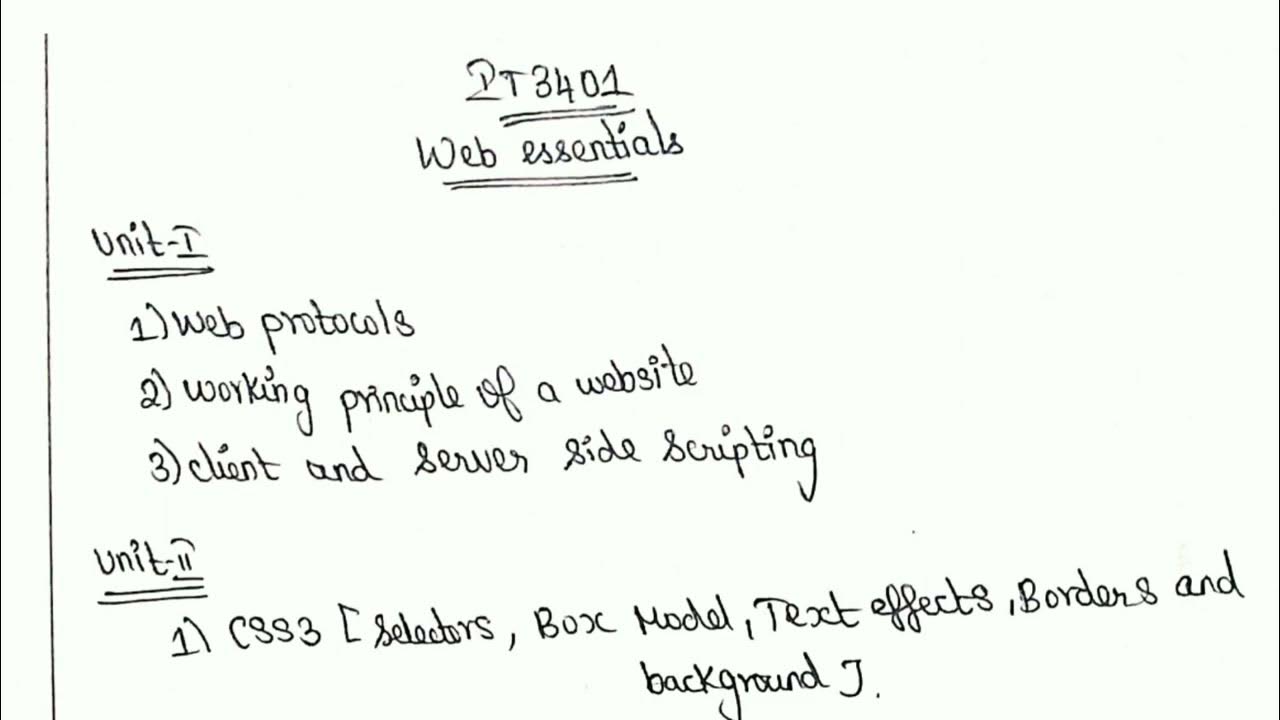 IT3401
Web essentials
Unit-I
1) Web protocols
2) Working principle of a website
3) client and server side scripting
Unit-II
1) CSS3 [Selectors, Box Model, Text effects, Borders and
background].